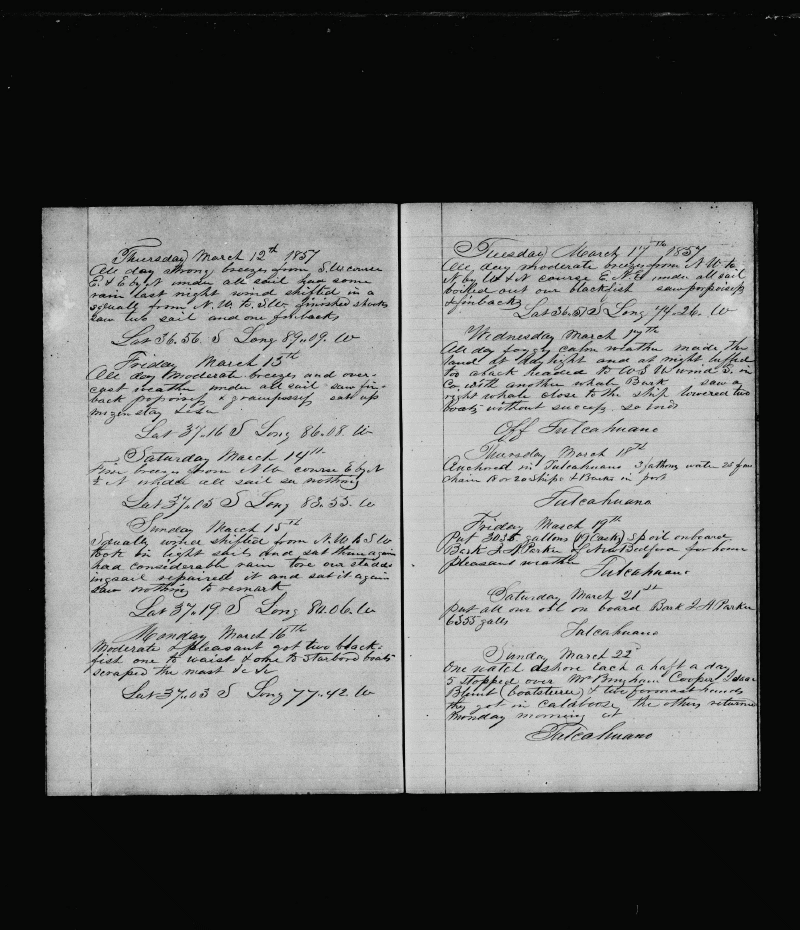 Thursday March 12th 1857
All day strong breezes from S.W. course
E. & E by N under all sail had some
rain last night wind shifted in a
squall from N.W. to S.W. finished shooks
saw two sail and one finback
Lat 36.56. S Long 89.09. W
Friday March 13th
All day moderate breezes and over-
cast weather under all sail saw fin-
back porpoises & grampusses set up
mizen stay
Lat 37.16 S Long 86.08. W
Saturday March 14th
Fine breezes from N.W course E by N
½ N under all sail se nothing
Lat 37.05 S Long 83.55. W
Sunday March 15th
Squally wind shifted from N.W to S.W
took in light sails and sat them again
had considerable rain tore our studd-
ingsail repaireth it and sat it again
Saw nothing to remark
Lat 37.19 S Long 80.06. W
Monday March 16th
Moderate & pleasant got two black-
fish one to waist & one to Starbord boats
scraped the mast &c &c
Lat 37.03 S Long 77.42. W
Tuesday March 17th 1857
All day moderate breezes from N.W to
N by W & N course E.N.E under all sail
boiled out our blackfish saw porpoises
& finbacks
Lat 36.51 S Long 74.26. W
Wednesday March 17th
All day foggy calm weather made the
land at day light and at night luffed
too aback headed to W.S.W wind S. in
Co. with another whale Bark saw a
right whale close to the ship lowered two
boats without success. so ends
Off Tulcahuano
Thursday March 18th
Anchored in Tulcahuano 3 fathoms water 25 fam
chain 15 or 20 ships & Barks in port
Tulcahuano
Friday March 19th
Put 3035 gallons (19 Casks) Sp oil onboard
Bark J. A Parker of New Bedford for home
pleasant weather
Tulcahuano
Saturday March 21st
put all our oil on board Bark J. A Parker
6355 galls
Tulcahuano
Sunday March 22d
One watch ashore each a haft a day
5 stopped over Mr Bingham Cooper Isaac
Blunt (boatsteerer) & two formast hands
they got in calaboose the others returned
Monday morning at
Tulcahuano